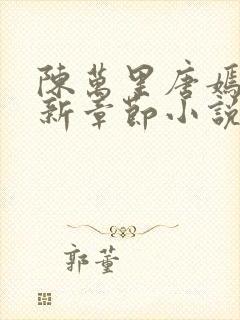 陳萬里唐嫣
新章節小說
郭董